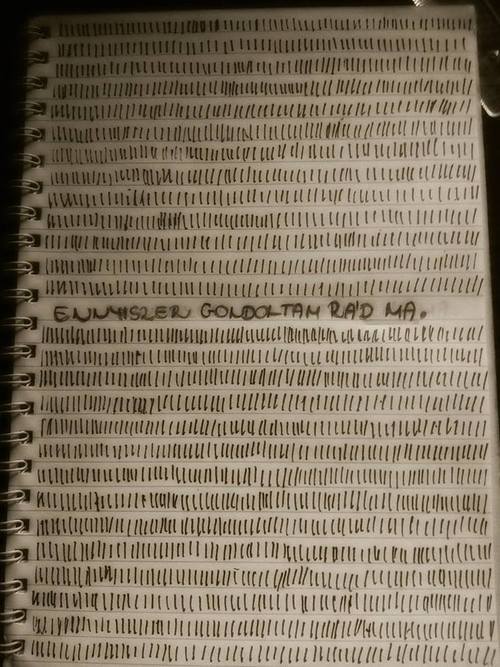 ENNYISZER GONDOLTAM RÁD MA.